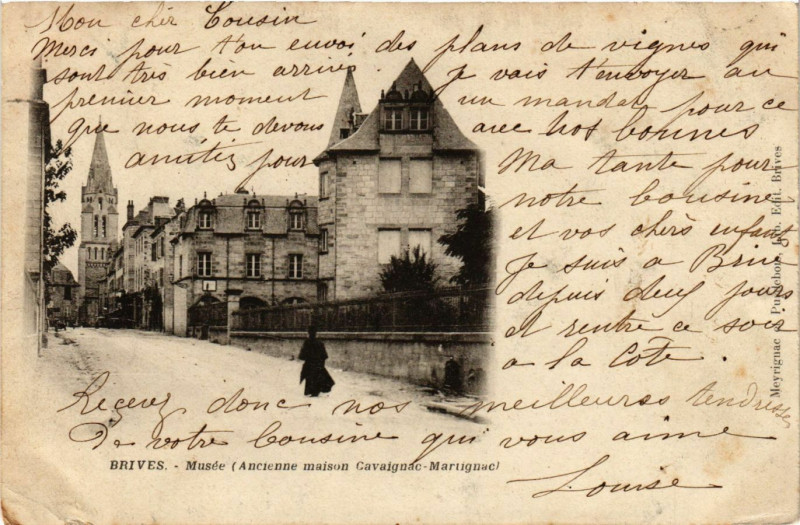 Mon cher Cousin
Merci pour ton envoi des plans de vignes qui
sont très bien arrivés. Je vais t'envoyer au
premier moment un mandat pour ce
que nous te devons avec nos bonnes
amitiés pour
Ma tante pour
notre Cousine
et vos chers enfants
Je suis a Brive
depuis deux jours
et rentre ce soir
a la Cote.
Recevez donc nos meilleures tendresses
De votre Cousine qui vous aime
Louise
BRIVES. - Musée (Ancienne maison Cavaignac-Martignac)
Meyrignac Puyjebon, Edit. Brives